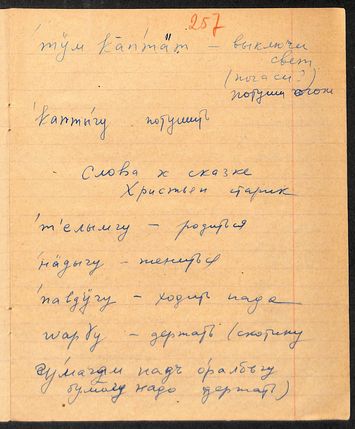 257
тӱм ка̄птӓт – выключи
свет
(погаси?)
потуши огонь
каптыгу потушить
Слова к сказке
Христьен старик
т'елымгу – родиться
надыгу – жениться
павдӱгу – ходить надо
warгу – держать (скотину
сӱмагдм надъ оралбъгу
бумагу надо держать)